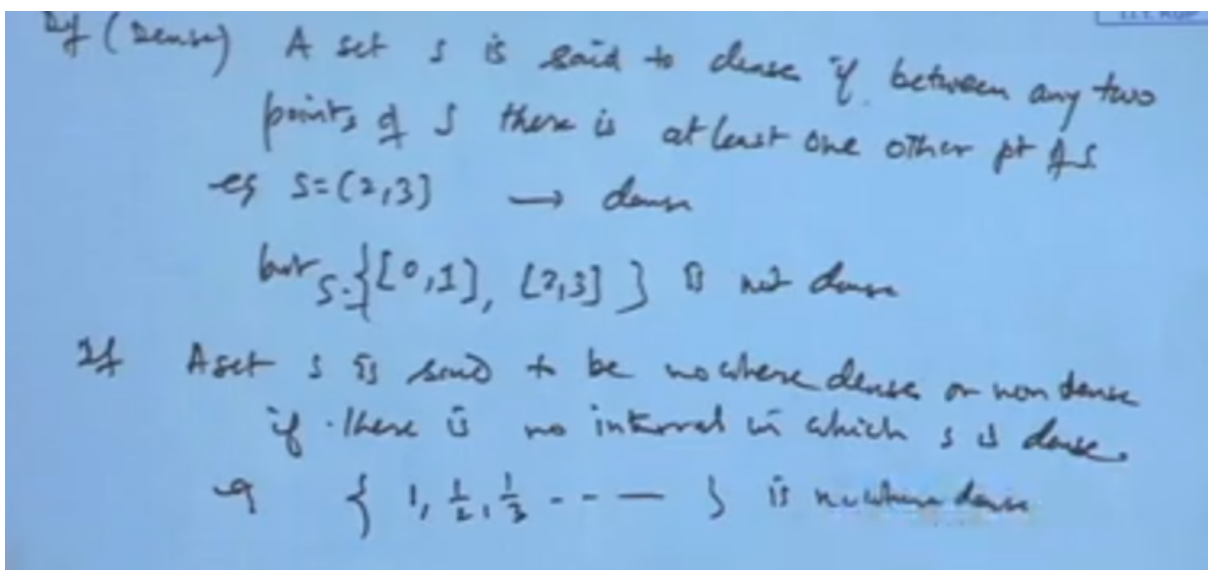 Df (Dense) A set S is said to dense if between any two
points of S there is at least one other pt of S
eg S=(2,3] → dense
but S={[0,1], [2,3]} is not dense
Df A set S is said to be nowhere dense or non dense
if there is no interval in which S is dense.
eg {1, 1/2, 1/3 - - — } is nowhere dense